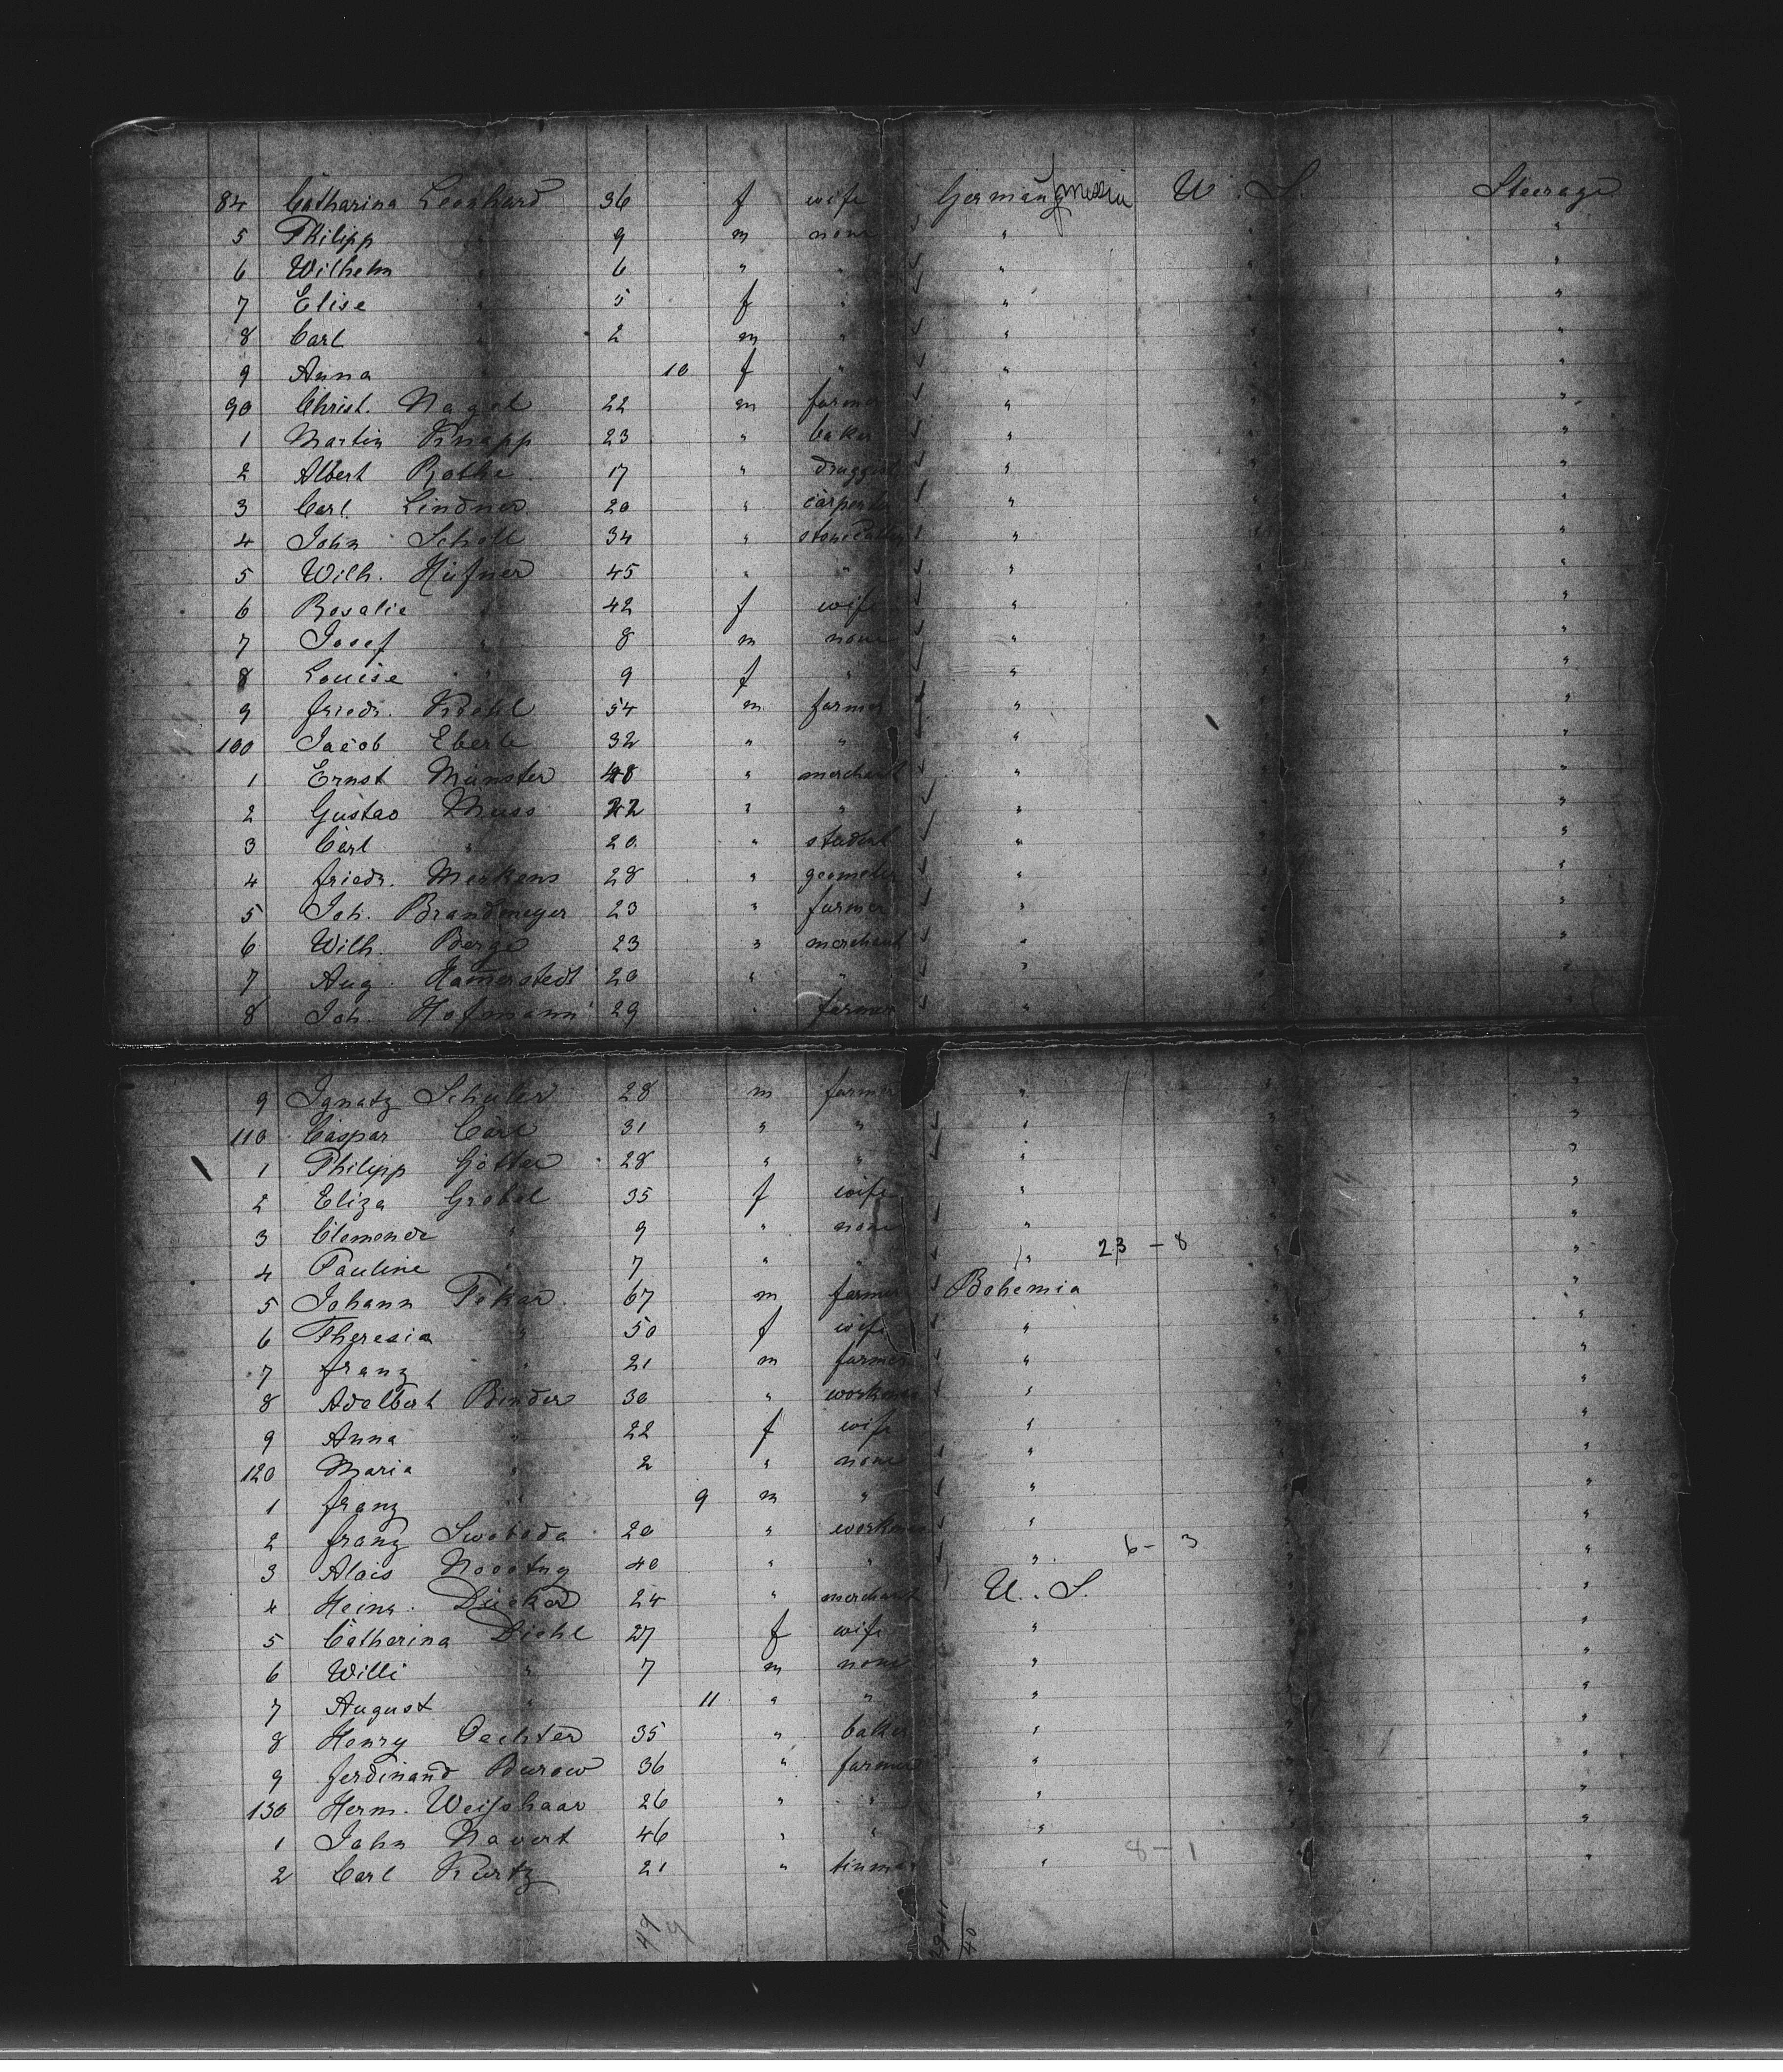 84 Catharina Leonhard 36 f wife Germany U. S. Steerage
5 Philipp " 9 m none " " "
6 Wilhelm " 6 " " " " "
7 Elise " 5 f " " " "
8 Carl " 2 m " " " "
9 Anna " 10 f " " " "
90 Christ. Nagel 22 m farmer " " "
1 Martin Knapp 23 " baker " " "
2 Albert Rothe 17 " druggist " " "
3 Carl Lindner 20 " carpenter " " "
4 John Scholl 34 " stonecutter " " "
5 Wilh. Hüfner 45 " " " " "
6 Rosalie " 42 f wife " " "
7 Josef " 8 m none " " "
8 Louise " 9 f " " " "
9 Friedr. 54 m farmer " " "
100 Jacob Eberle 32 " " " " "
1 Ernst Münster 48 " merchant " " "
2 Gustav Muss 22 " " " " "
3 Carl " 20 " student " " "
4 Friedr. Merkens 28 " geometer " " "
5 Joh. Brandmeyer 23 " farmer " " "
6 Wilh. Berge 23 " merchant " " "
7 Aug. Hamerstedt 20 " " " " "
8 Joh. Hofmann 29 " farmer " " "
9 Ignatz Schuler 28 m farmer " " "
110 Caspar Carl 31 " " " " "
1 Philipp 28 " " " " "
2 Eliza Grobel 35 f wife " " "
3 Clemende " 9 " none " " "
4 Pauline " 7 " " " 23 - 8 " "
5 Johann Pekar 67 m farmer Bohemia " "
6 Theresia " 50 f wife " " "
7 Franz " 21 m farmer " " "
8 Adelbert Binder 30 " workman " " "
9 Anna " 22 f wife " " "
120 Maria " 2 " none " " "
1 Franz " 9 m " " " "
2 Franz Swoboda 20 " workman " " "
3 Alois Novotny 40 " " " 6 - 3 " "
4 Heinr. Dücker 24 " merchant U. S. " "
5 Catharina Diehl 27 f wife " " "
6 Willi " 7 m none " " "
7 August " 11 " " " " "
8 Henry Oechter 35 " baker " " "
9 Ferdinand Burow 36 " farmer " " "
130 Herm. Weisshaar 26 " " " " "
1 John Navert 46 " " " 8 - 1 " "
2 Carl Kurtz 21 " tinman " " "
49 29-11 40